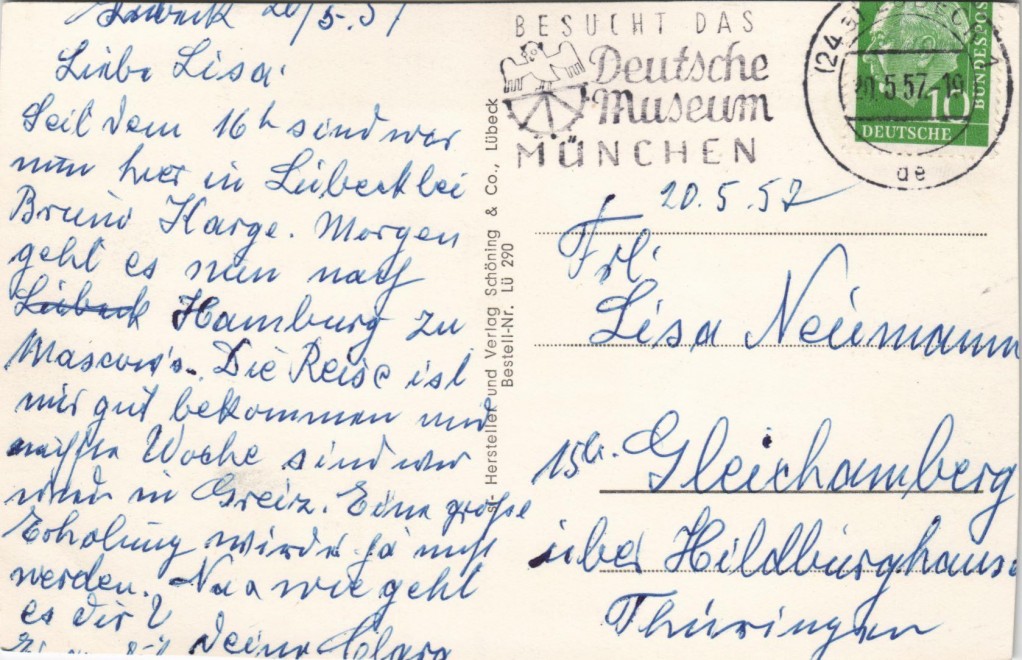 20/5.57
Liebe Lisa.
Seit dem 16h sind wir
nun hier in Lübeck bei
Bruno Karge. Morgen
geht es nun nach
Lübeck Hamburg zu
Mascow's. Die Reise ist
mir gut bekommen und
nächste Woche sind wir
wieder in Greiz. Eine große
Erholung wird es ja nicht
werden. Na wie geht
es Dir?
Deine Clara
st- Hersteller und Verlag Schöning & Co., Lübeck
Bestell-Nr. LÜ 290
BESUCHT DAS
Deutsche
Museum
MÜNCHEN
20.5.57.
ae
10
DEUTSCHE
BUNDESPOS
20.5.57
Frl.
Lisa Neumann
Gleichamberg
über Hildburghaus
Thüringen